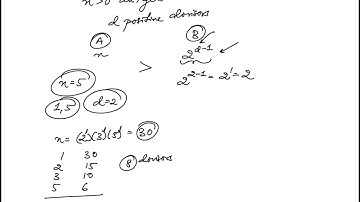 n>0
d positive divisors
A B
n > 2^{d-1}
n=5
2^{2-1} = 2^1 = 2
1,5 d=2
n= (2^1)(3^1)(5^1) = 30
1 30
2 15
3 10
5 6
8 divisors